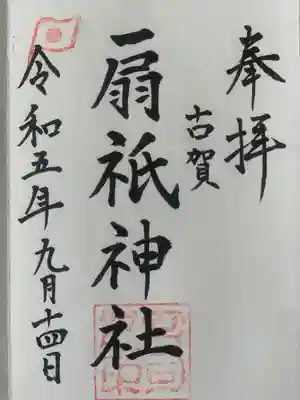 奉拝
古賀
扇祇神社
令和五年九月十四日